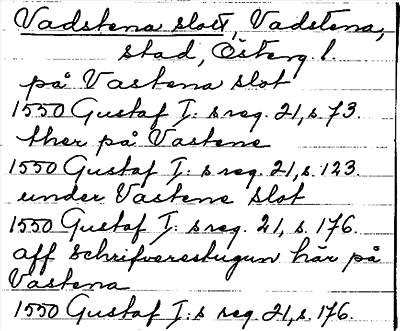 Vadstena slott, Vadstena,
stad, Österg l.
på Vastena slot
1550 Gustaf I: s reg. 21, s. 73.
ther på Vastene
1550 Gustaf I: s reg. 21, s. 123.
under Vastene slot
1550 Gustaf I: s reg. 21, s. 176.
aff schrifverestugun här på
Vastena
1550 Gustaf I: s reg. 21, s. 176.